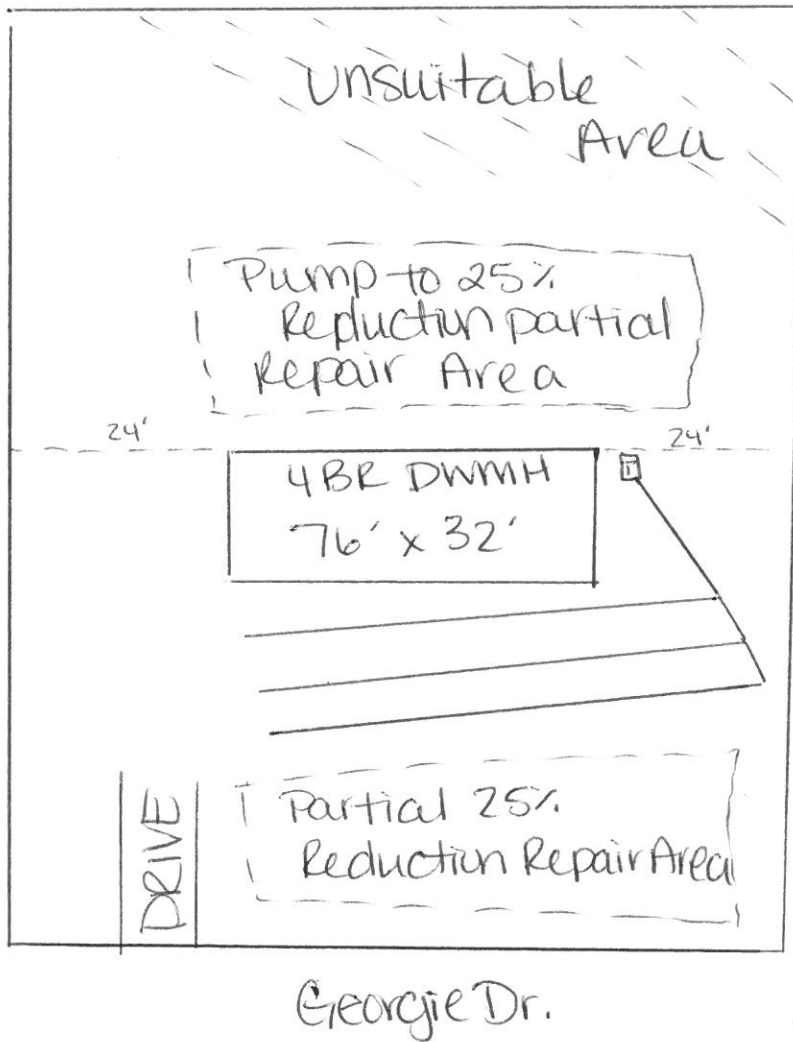 Unsuitable
Area
Pump to 25%
Reduction partial
Repair Area
24'
24'
4BR DWMH
76' x 32'
T
DRIVE
Partial 25%
Reduction Repair Area
Georgie Dr.